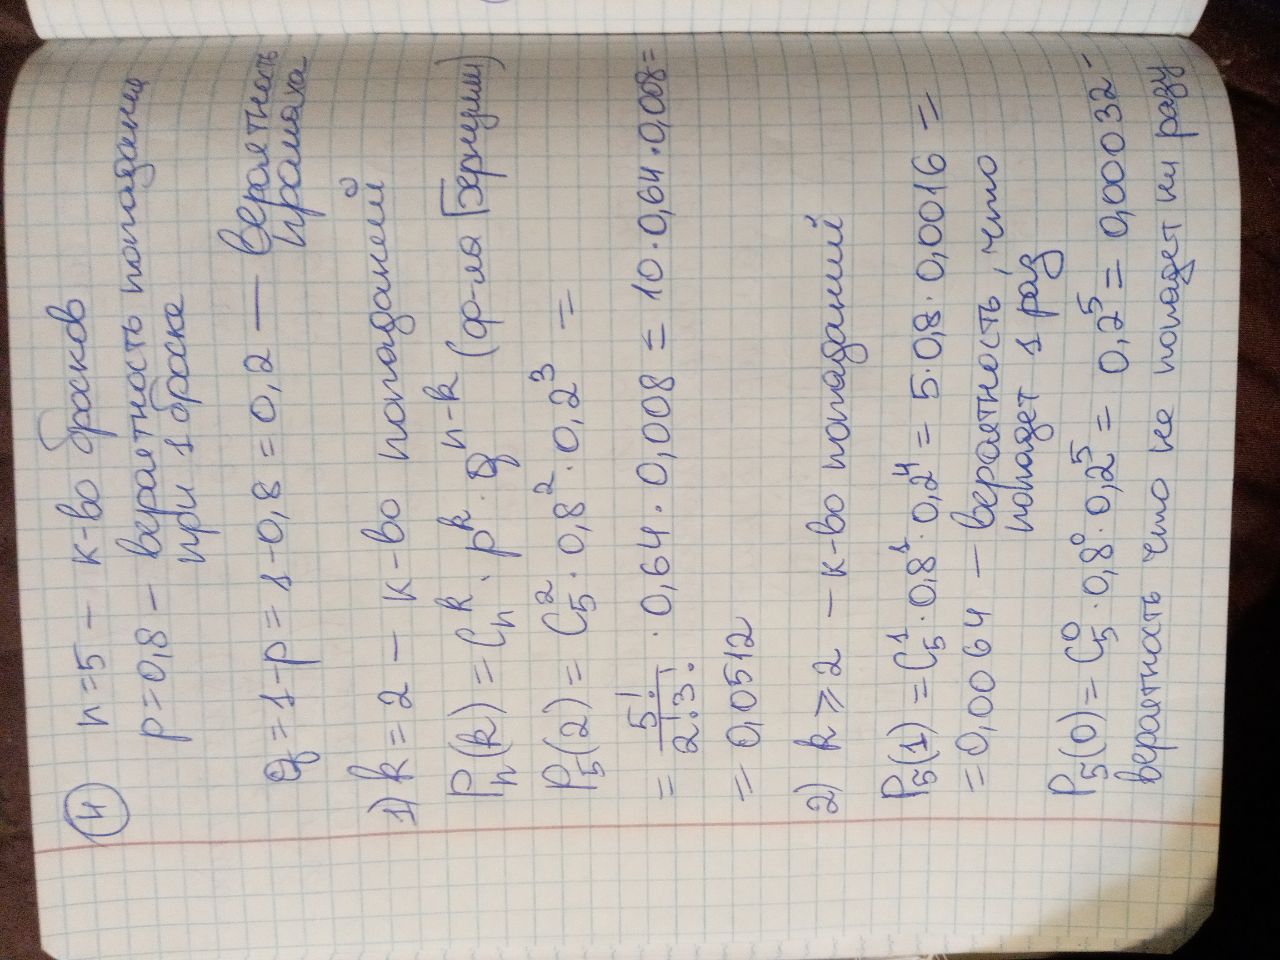 4 n=5 – к-во бросков
p=0,8 – вероятность попадания
при 1 броске
q=1-p=1-0,8=0,2 — вероятность
промаха
1) k=2 – к-во попаданий
Pₙ(k)=Cₙᵏ·pᵏ·qⁿ⁻ᵏ (ф-ла Бернулли)
P₅(2)=C₅²·0,8²·0,2³=
=5!/(2!3!)·0,64·0,008=10·0,64·0,008=
=0,0512
2) k⩾2 – к-во попаданий
P₅(1)=C₅¹·0,8¹·0,2⁴=5·0,8·0,0016=
=0,0064 – вероятность, что
попадет 1 раз
P₅(0)=C₅⁰·0,8⁰·0,2⁵=0,2⁵=0,00032 –
вероятность что не попадет ни разу